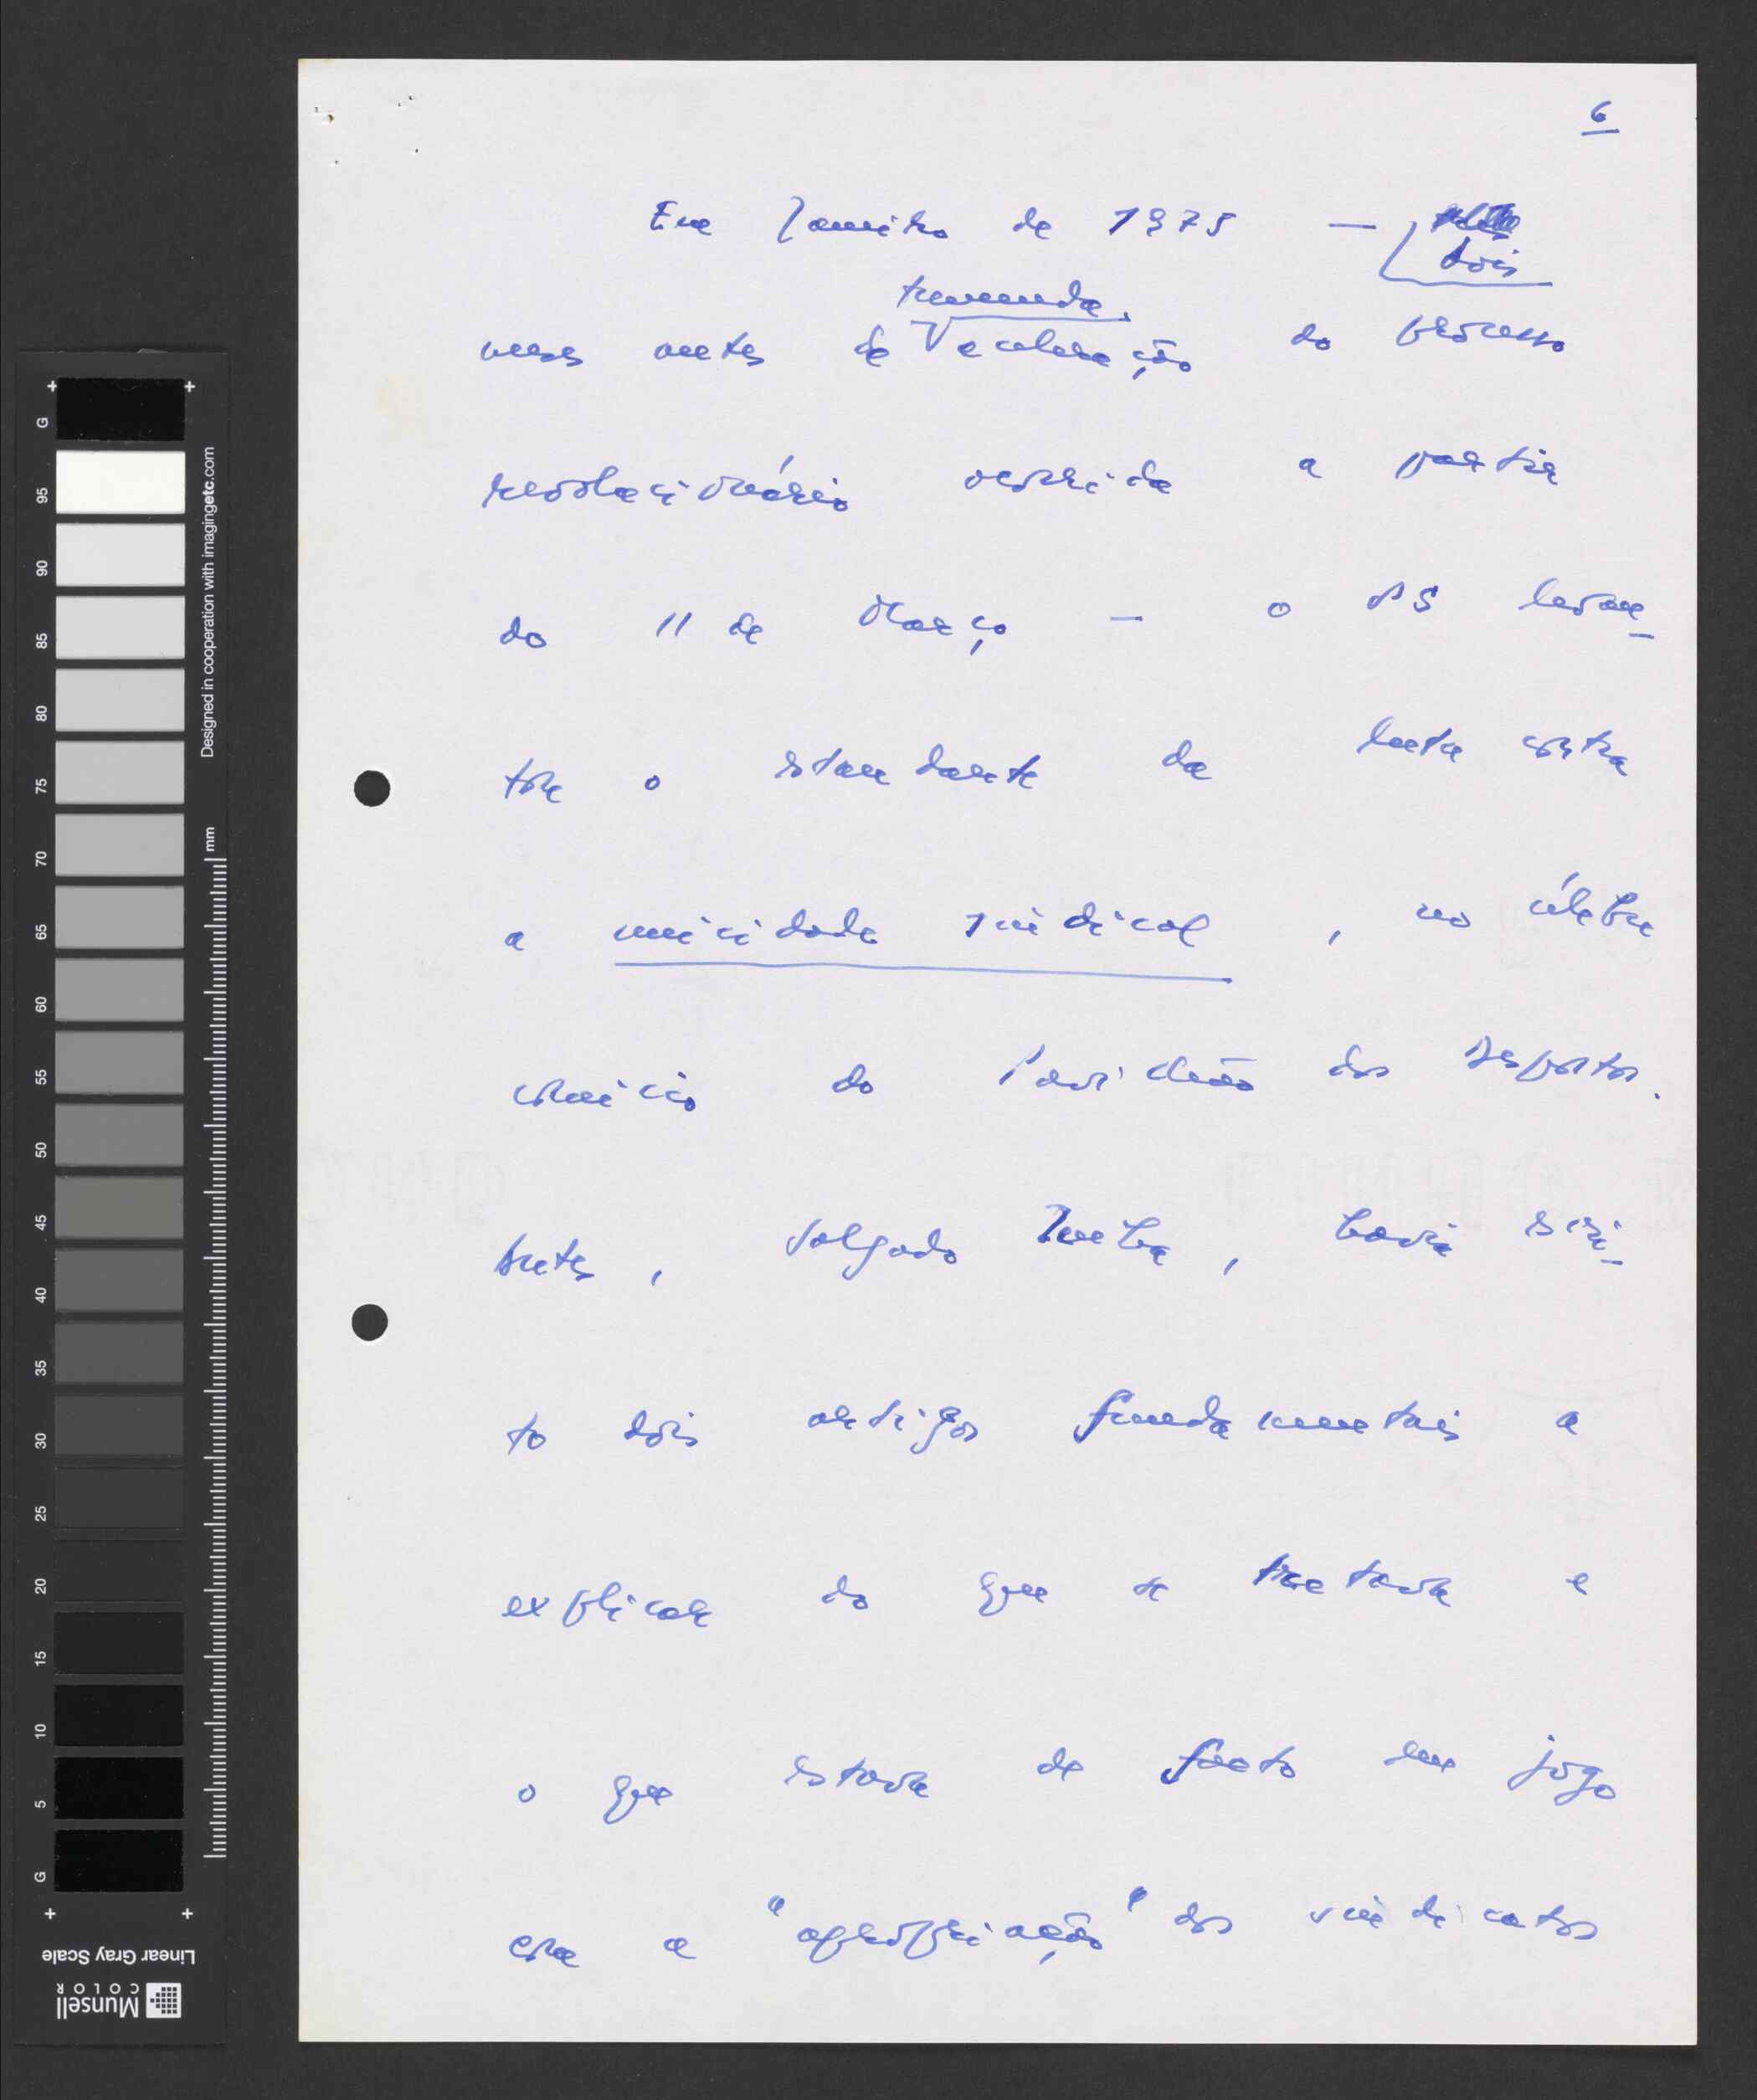 6
Em Janeiro de 1975 — dois
tremenda
meses antes da aceleração do processo
revolucionário ocorrida a partir
do 11 de Março — o PS levan-
tou o estandarte da luta contra
a unicidade sindical, no célebre
comício do Pavilhão dos Desportos.
Antes, Salgado Zenha, havia escri-
to dois artigos fundamentais a
explicar do que se tratava e
o que estava de facto em jogo
era a "apropriação" dos sindicatos
G
95
90
85
80
75
70
65
60
55
50
45
40
35
30
25
20
15
10
5
G
Designed in cooperation with imagingetc.com
mm
Linear Gray Scale
Munsell
COLOR